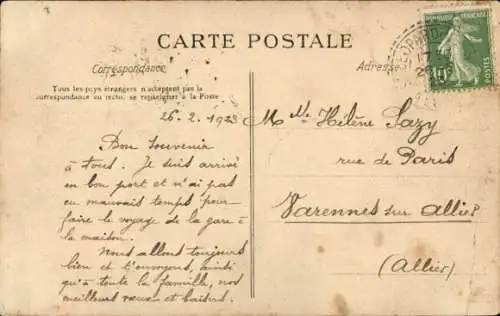 CARTE POSTALE
Correspondance
Tous les pays étrangers n'acceptent pas la
correspondance au recto, se renseigner à la Poste
Adresse
RÉPUBLIQUE FRANÇAISE
POSTES
10
26-2-1923
Bon souvenir
à tous. Je suis arrivé
en bon port et n'ai pas
eu mauvais temps pour
faire le voyage de la gare à
la maison.
Nous allons toujours
bien et t'envoyons, ainsi
qu'à toute la famille, nos
meilleurs vœux et baisers.
Mlle Hélène Sazy
rue de Paris
Varennes sur Allier
(Allier)